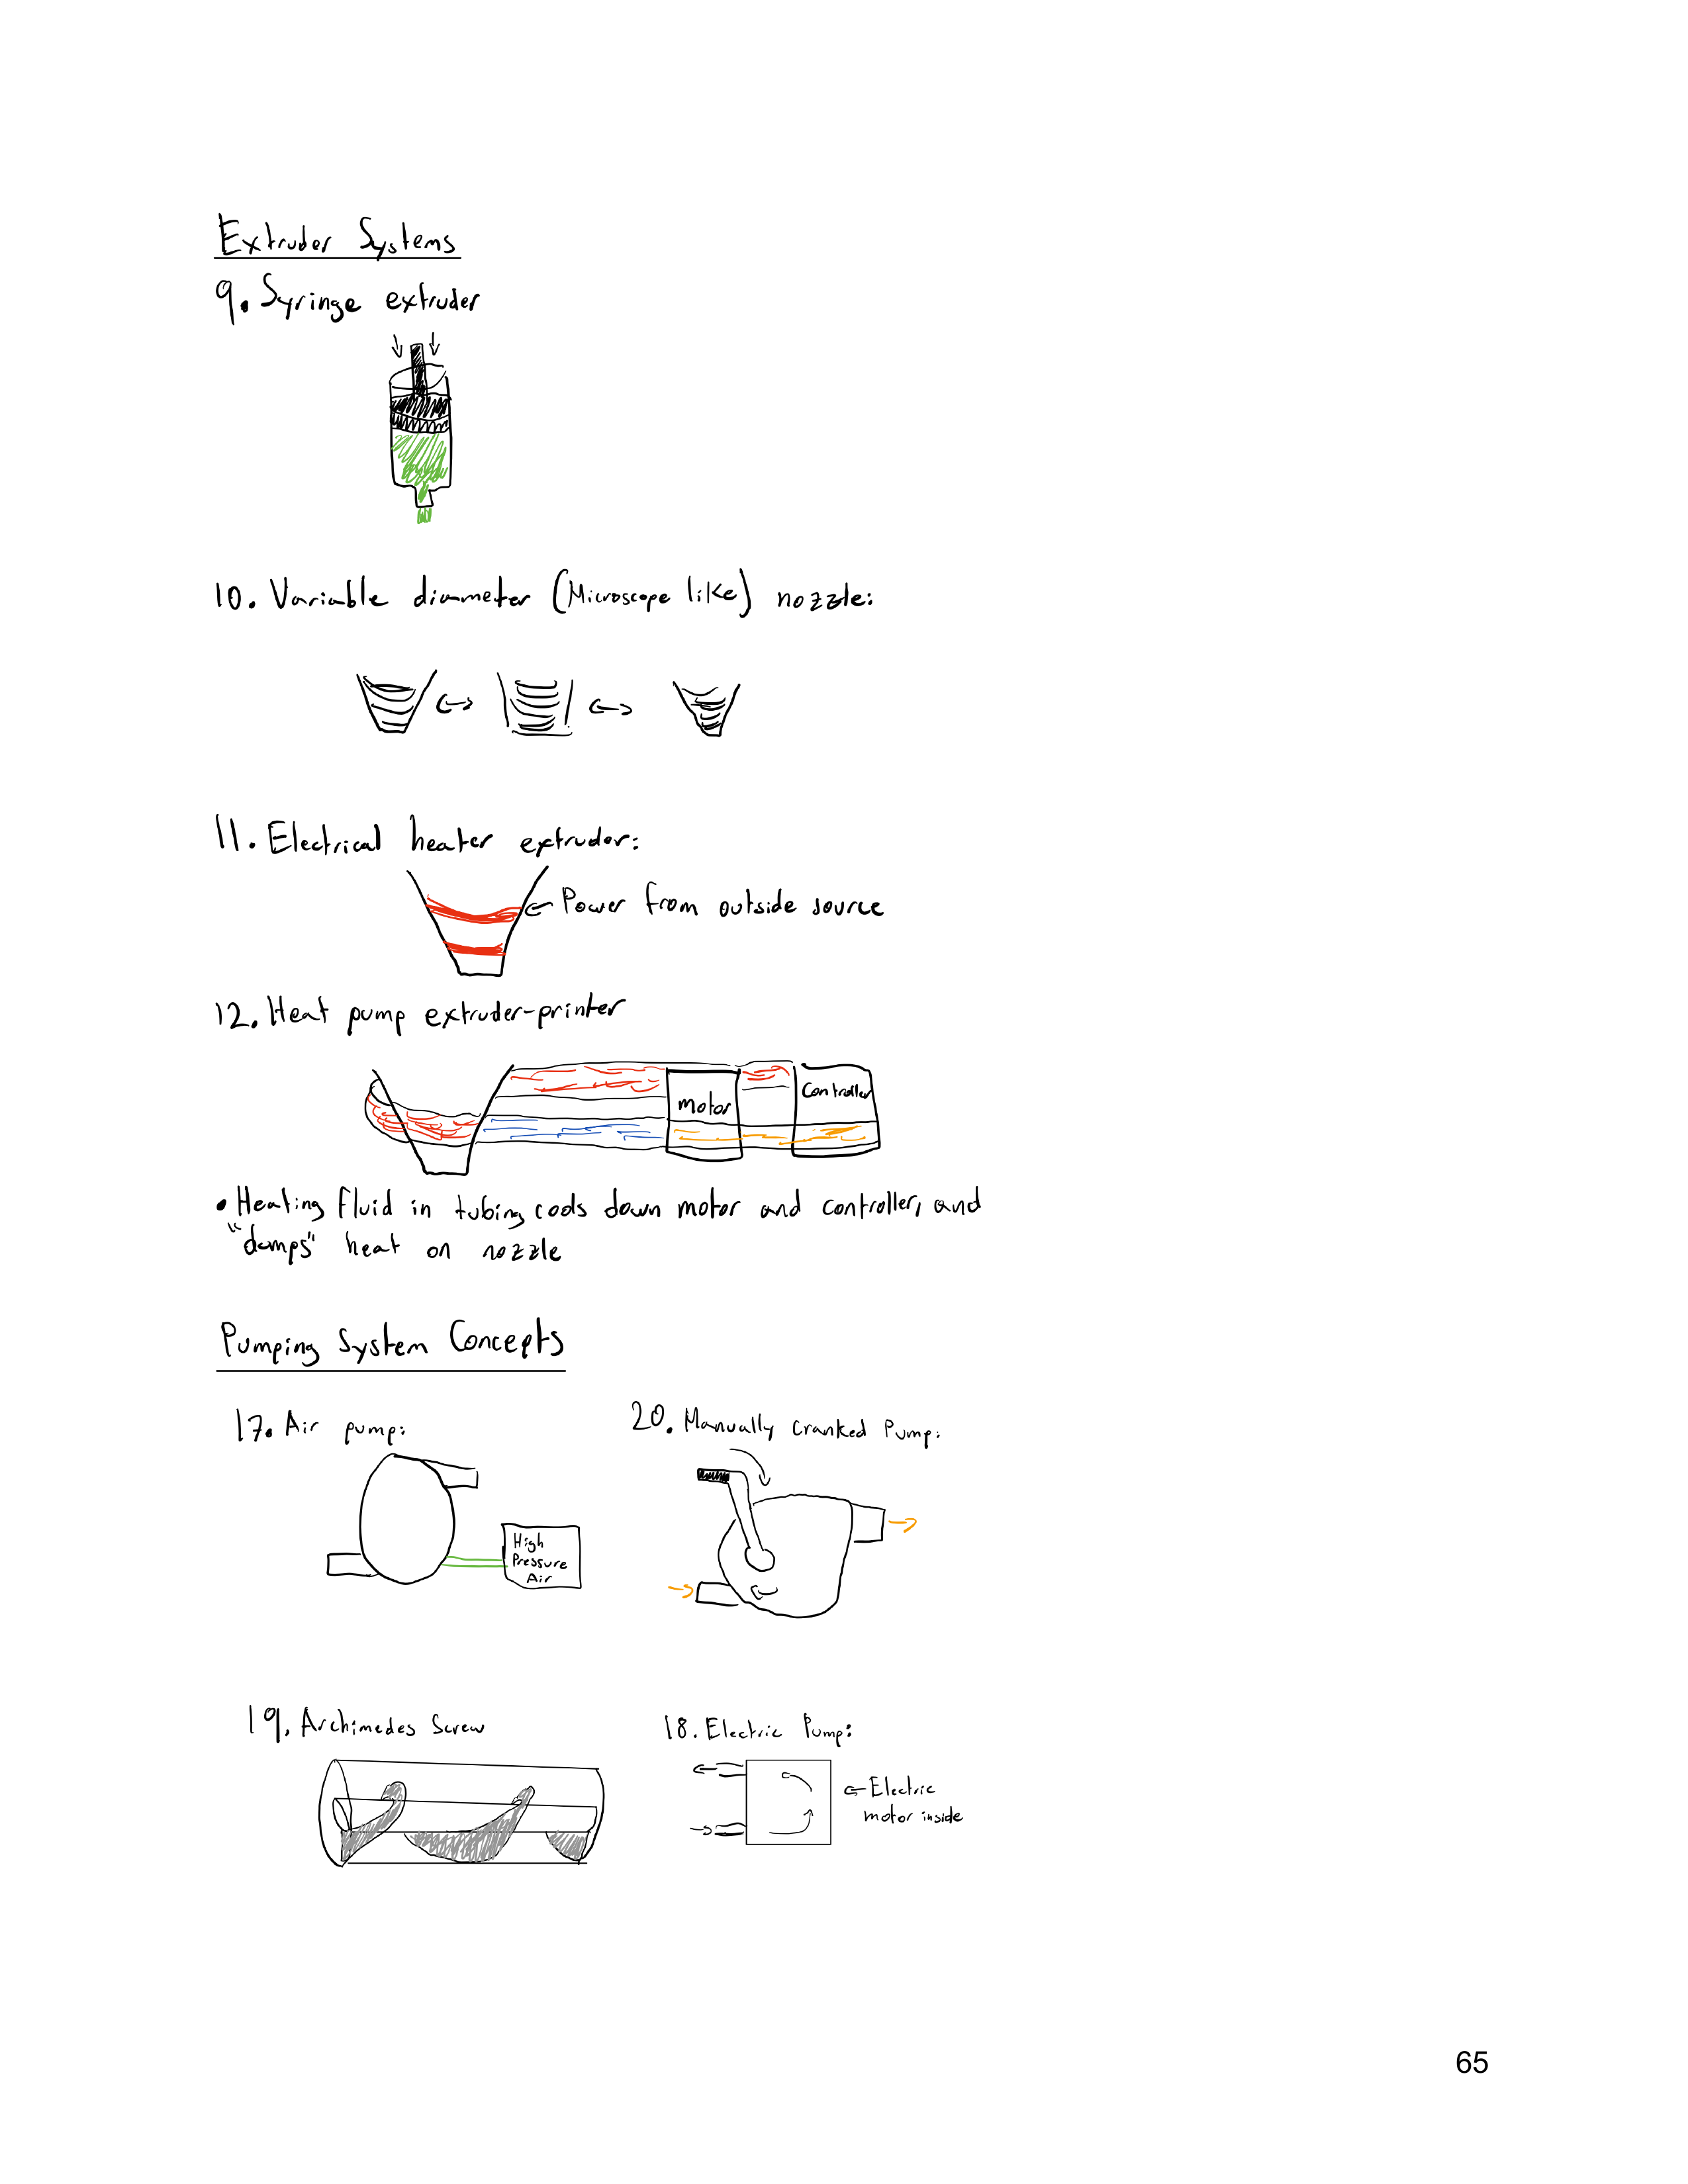 Extruder Systems
9. Syringe extruder
10. Variable diameter (Microscope like) nozzle:
11. Electrical heater extruder:
Power from outside source
12. Heat pump extruder-printer
motor
Controller
• Heating fluid in tubing cools down motor and controller, and
"dumps" heat on nozzle
Pumping System Concepts
17. Air pump:
High
Pressure
Air
20. Manually Cranked Pump:
19. Archimedes Screw
18. Electric Pump:
Electric
motor inside
65